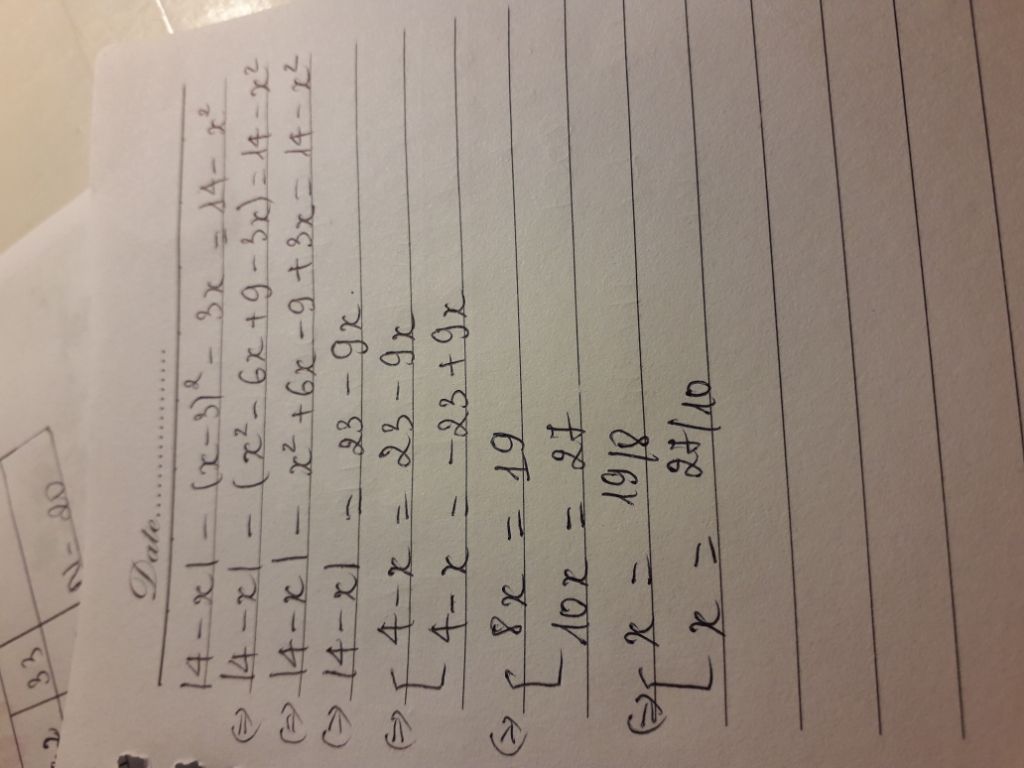 Date
|4 - x| - (x - 3)² - 3x = 14 - x²
(=) |4 - x| - (x² - 6x + 9 - 3x) = 14 - x²
(=) |4 - x| - x² + 6x - 9 + 3x = 14 - x²
(=) |4 - x| = 23 - 9x.
(=) [ 4 - x = 23 - 9x
4 - x = -23 + 9x
(=) [ 8x = 19
10x = 27
(=) [ x = 19/8
x = 27/10
2 33
N = 20